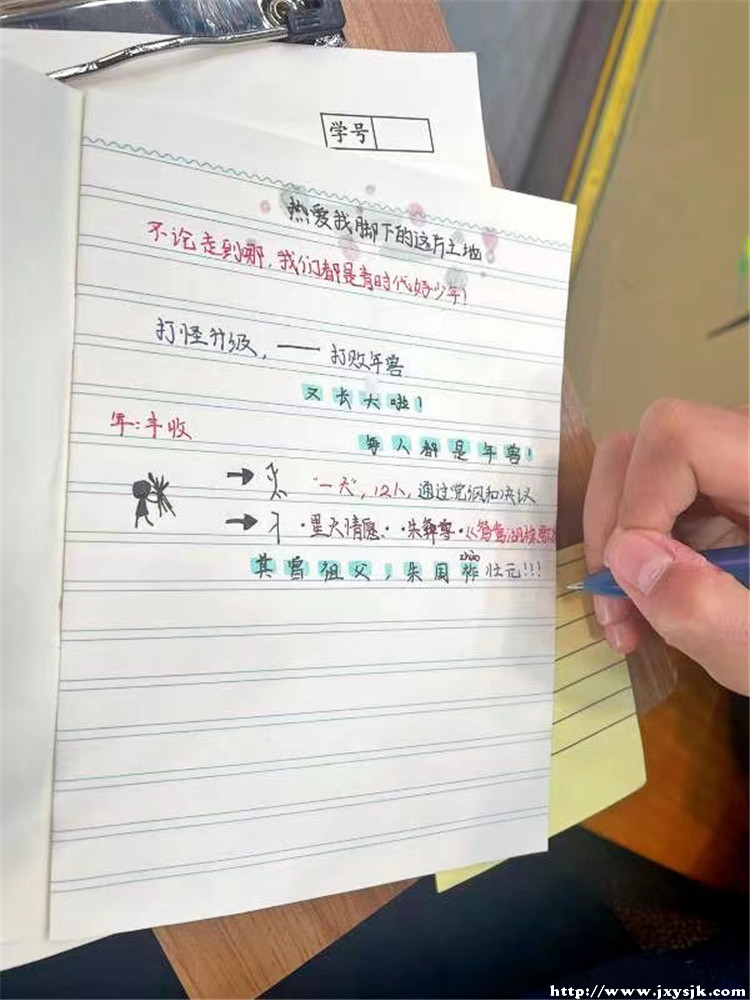 学号
热爱我脚下的这片土地
不论走到哪,我们都是青时代好少年!
打怪升级,——打败年兽
又长大啦!
年:丰收
每人都是年兽!
→ "一大",12人,通过党纲和决议
→ ·星火情愿··朱彝尊·《鸳鸯湖棹歌》
其曾祖父,朱国祚状元!!!
http://www.jxysjk.com